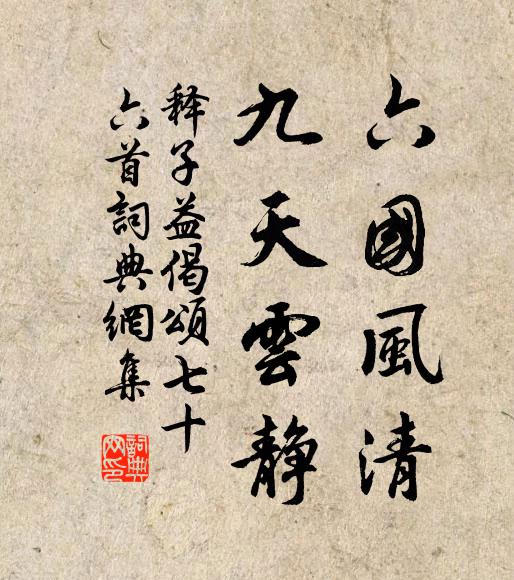 六國風清
九天雲静
釋子益偈頌七十
六首詞典網集
詞典網印